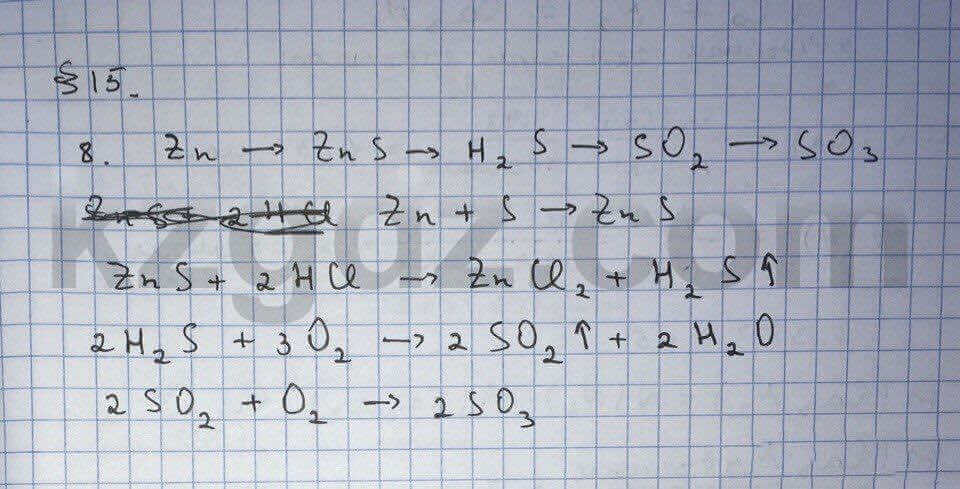 § 15.
8. Zn → ZnS → H₂S → SO₂ → SO₃
ZnS + 2HCl Zn + S → ZnS
ZnS + 2HCl → ZnCl₂ + H₂S↑
2H₂S + 3O₂ → 2SO₂↑ + 2H₂O
2SO₂ + O₂ → 2SO₃
kzgdz.com